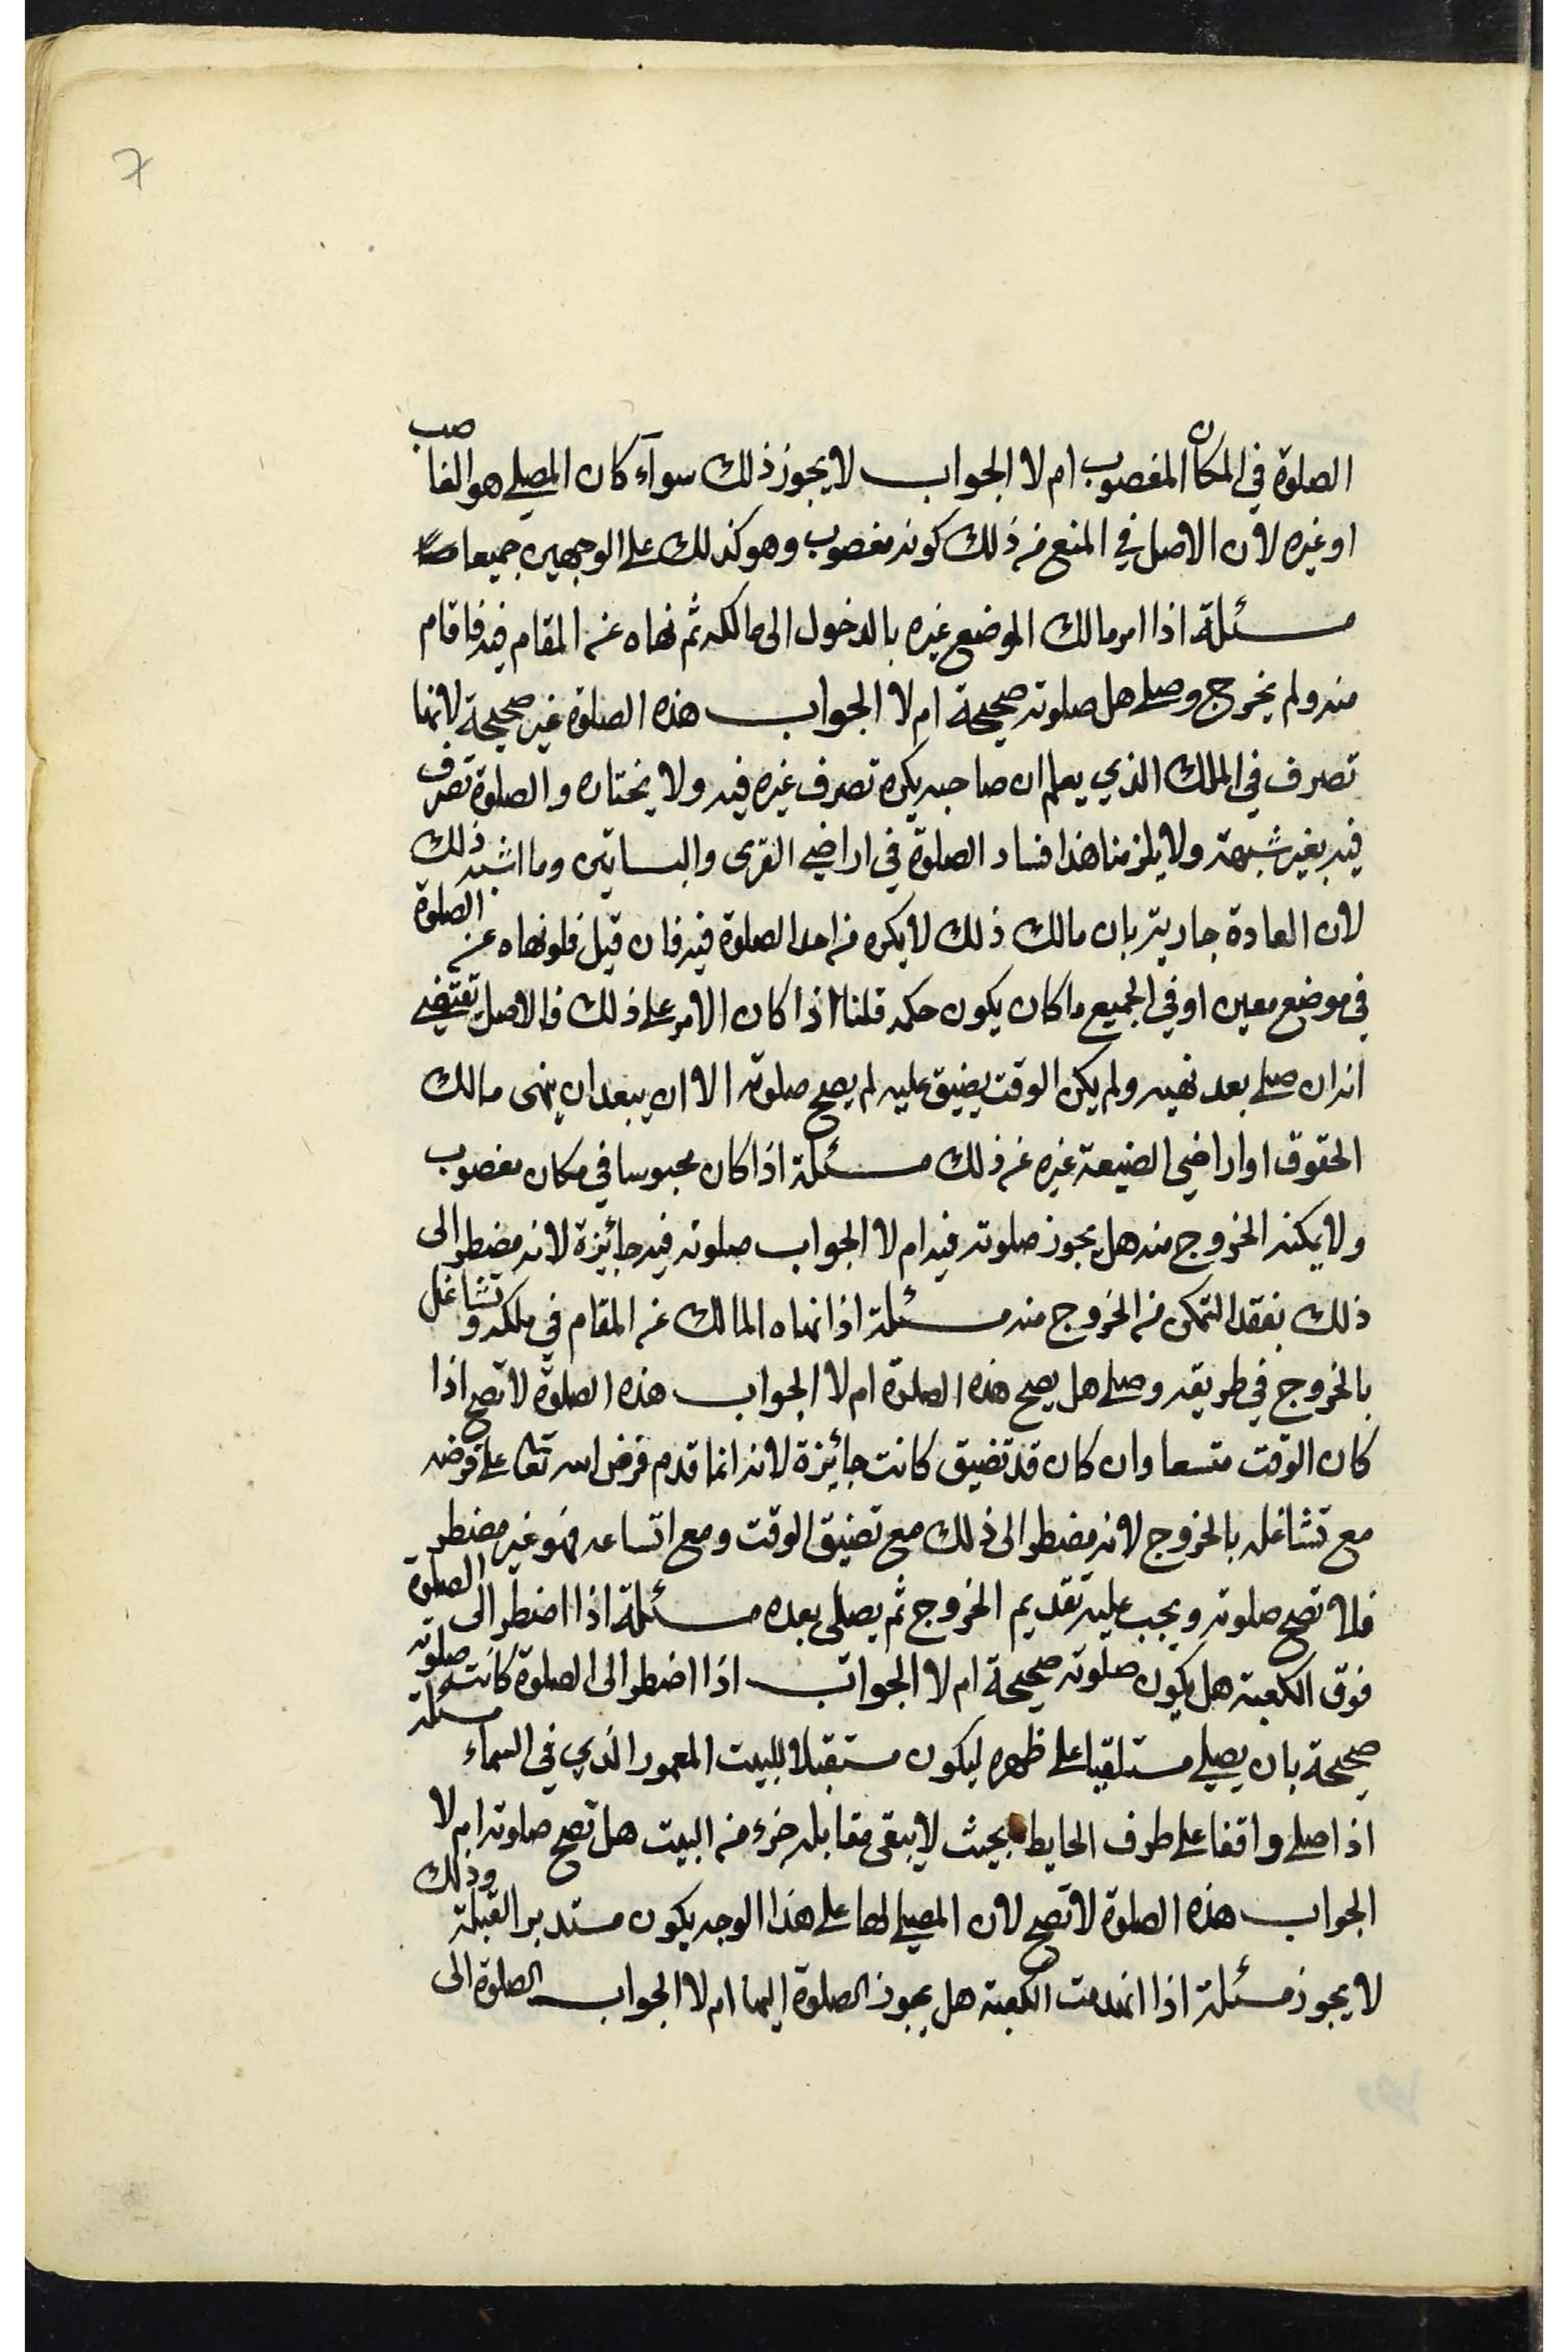 7
الصلوة في المكان المغصوب ام لا الجواب لا يجوز ذلك سوآء كان المصلي هو الغاصب
او غيره لان الاصل في المنع من ذلك كونه مغصوب وهو كذلك على الوجهين جميعا
مسئلة اذا امر مالك الموضع غيره بالدخول الى مالكه ثم نهاه عن المقام فيه فاقام
منه ولم يخرج وصلى هل صلوته صحيحة ام لا الجواب هذه الصلوة غير صحيحة لانها
تصرف في الملك الذي يعلم ان صاحبه يكره تصرف غيره فيه ولا يختاره والصلوة تصرف
فيه بغير شبهة ولا يلزمنا هذا فساد الصلوة في اراضي القرى والبساتين وما اشبه ذلك
لان العادة جارية بان مالك ذلك لا يكره من احد الصلوة فيه فان قيل فلو نهاه عن الصلوة
في موضع معين او في الجميع ما كان يكون حكمه قلنا اذا كان الامر على ذلك فالاصل يقتضي
انه ان صلى بعد نهيه ولم يكن الوقت يضيق عليه لم يصح صلوته الا ان يبعد ان ينهى مالك
الحقوق او اراضي الضيعة غيره عن ذلك مسئلة اذا كان محبوسا في مكان مغصوب
ولا يمكنه الخروج منه هل يجوز صلوته فيه ام لا الجواب صلوته فيه جائزة لانه مضطر الى
ذلك بفقد التمكن من الخروج منه مسئلة اذا نهاه المالك عن المقام في ملكه وتشاغل
بالخروج في طريقه وصلى هل يصح هذه الصلوة ام لا الجواب هذه الصلوة لا تصح اذا
كان الوقت متسعا وان كان قد تضيق كانت جائزة لانه انما قدم فرض الله تعا على فرضه
مع تشاغله بالخروج لانه مضطر الى ذلك مع تضيق الوقت ومع اتساعه فهو غير مضطر
فلا تصح صلوته ويجب عليه تقديم الخروج ثم يصلى بعده مسئلة اذا اضطر الى الصلوة
فوق الكعبة هل يكون صلوته صحيحة ام لا الجواب اذا اضطر الى الصلوة كانت صلوته
صحيحة بان يصلي مستلقيا على ظهره ليكون مستقبلا للبيت المعمور الذي في السماء مسئلة
اذا صلى واقفا على طرف الحايط بحيث لا يبقى مقابله جزء من البيت هل تصح صلوته ام لا
الجواب هذه الصلوة لا تصح لان المصلي لها على هذا الوجه يكون مستدبر القبلة وذلك
لا يجوز مسئلة اذا انهدمت الكعبة هل يجوز الصلوة اليها ام لا الجواب الصلوة الى